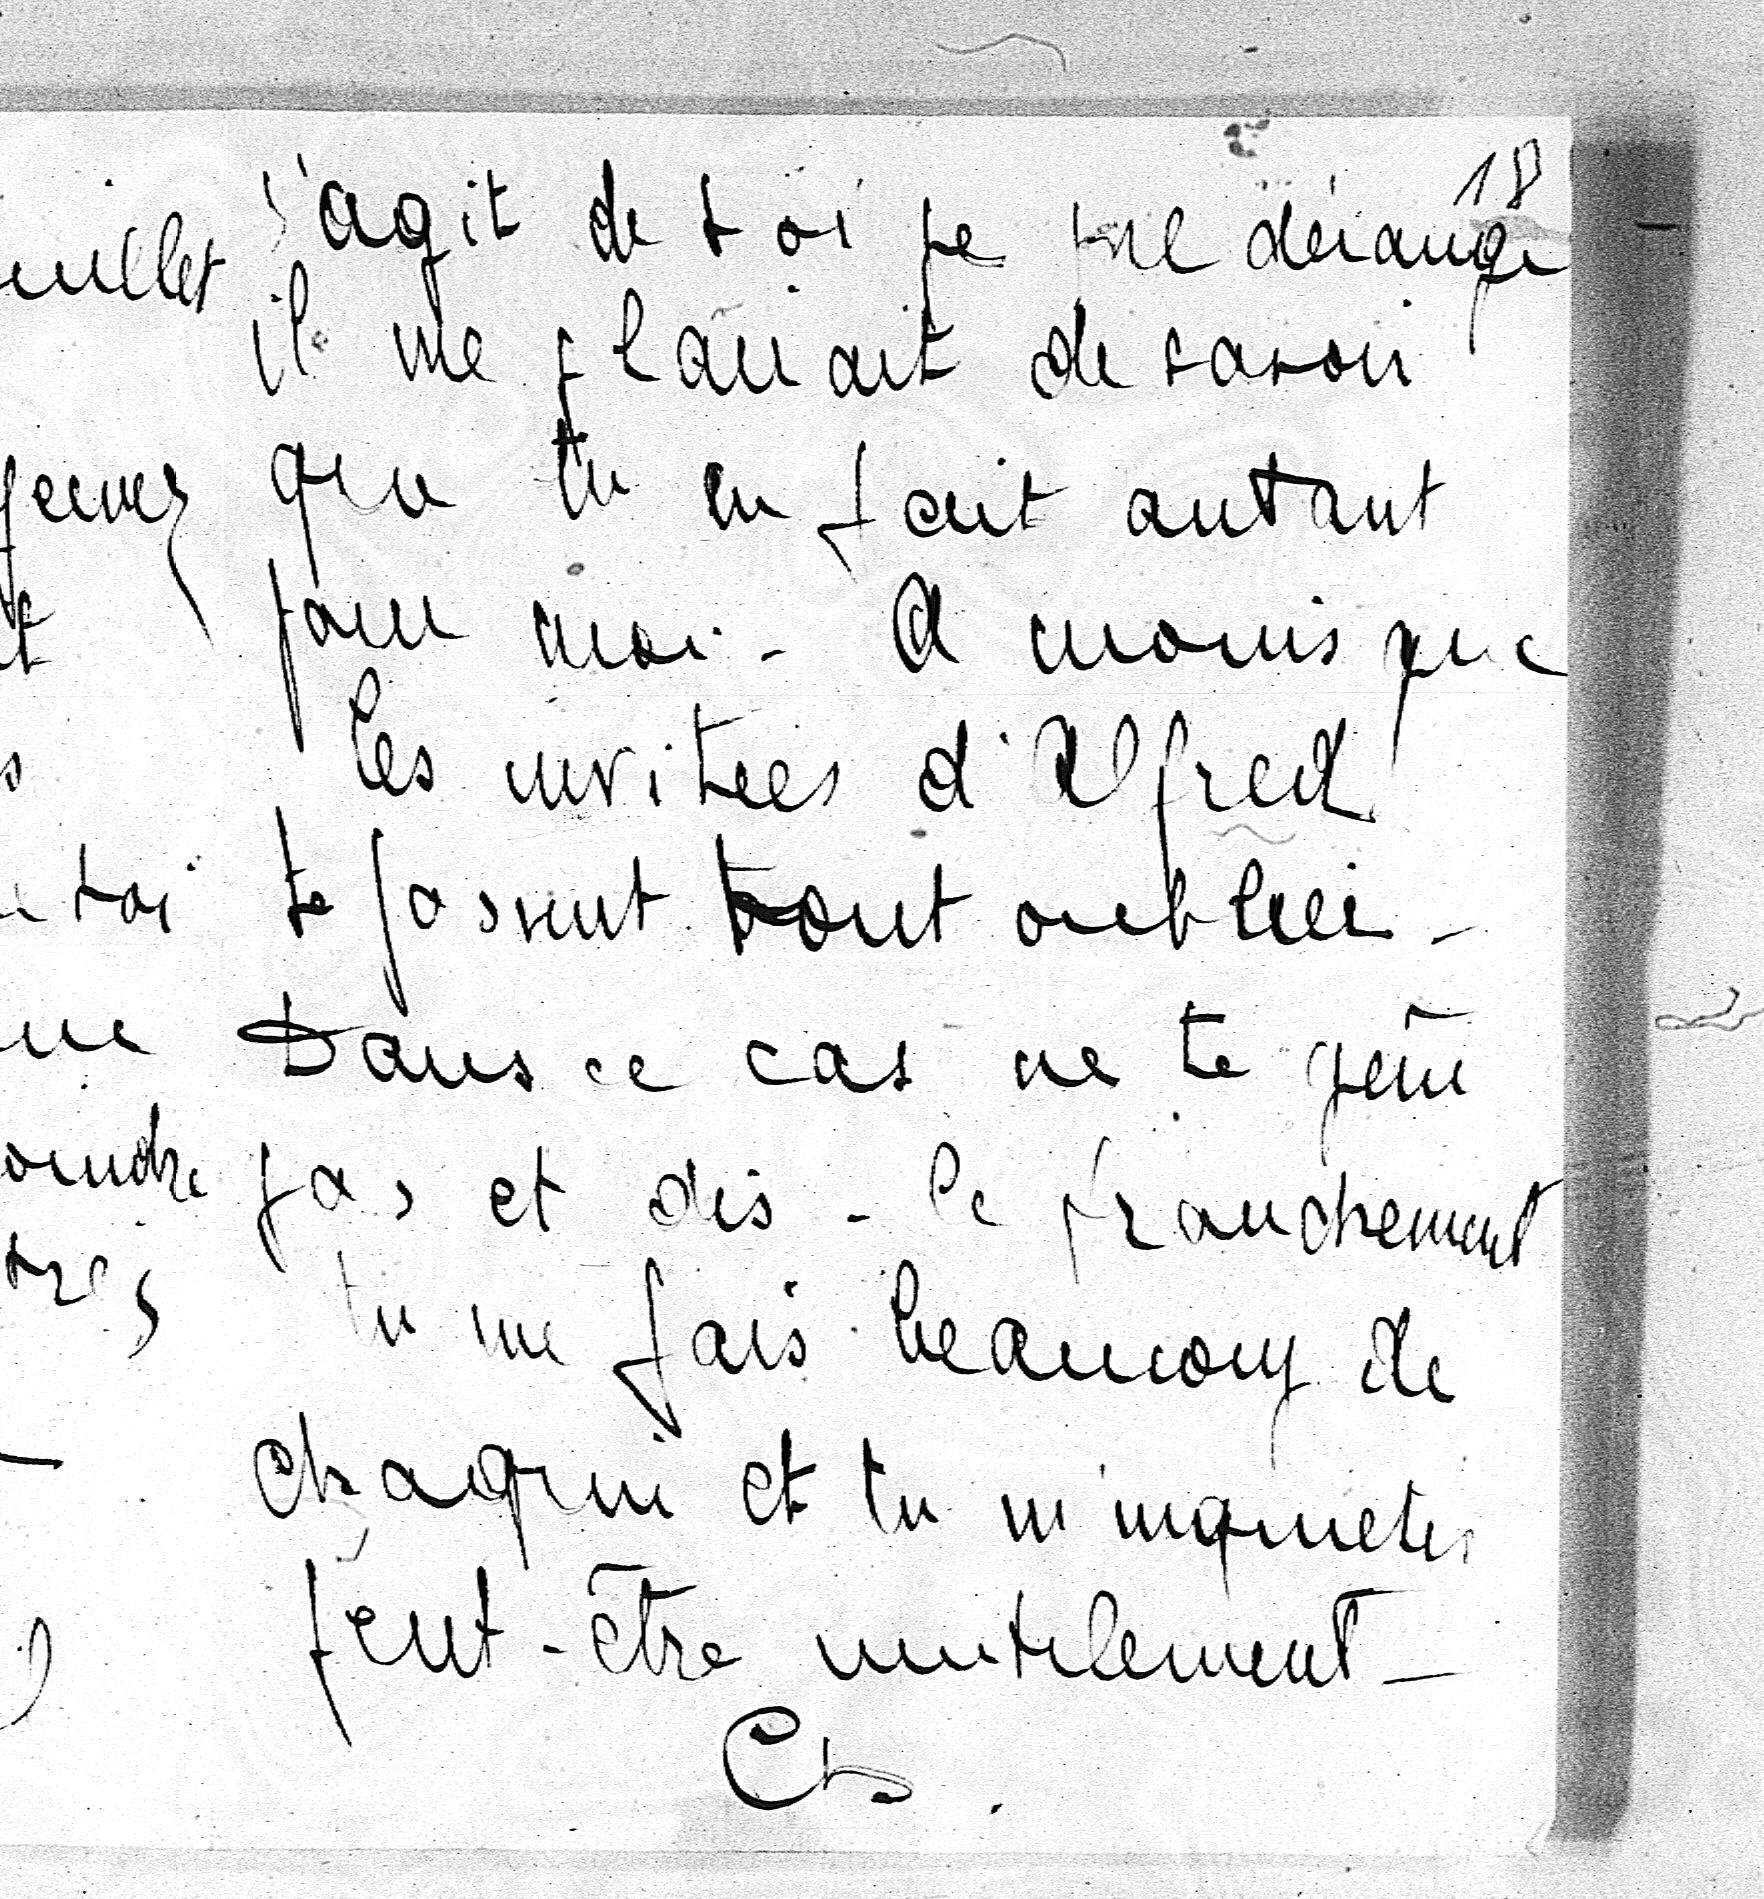 18
s'agit de toi je me dérange
il me plairait de savoir
que tu en fait autant
pour moi - A moins que
les invitées d'Alfred
te fassent tout oublier -
Dans ce cas ne te gêne
pas et dis - le franchement
tu me fais beaucoup de
chagrin et tu m'inquietes
peut-être inutilement -
Ch.
uillet
et
s
toi
ne
oindre
tres